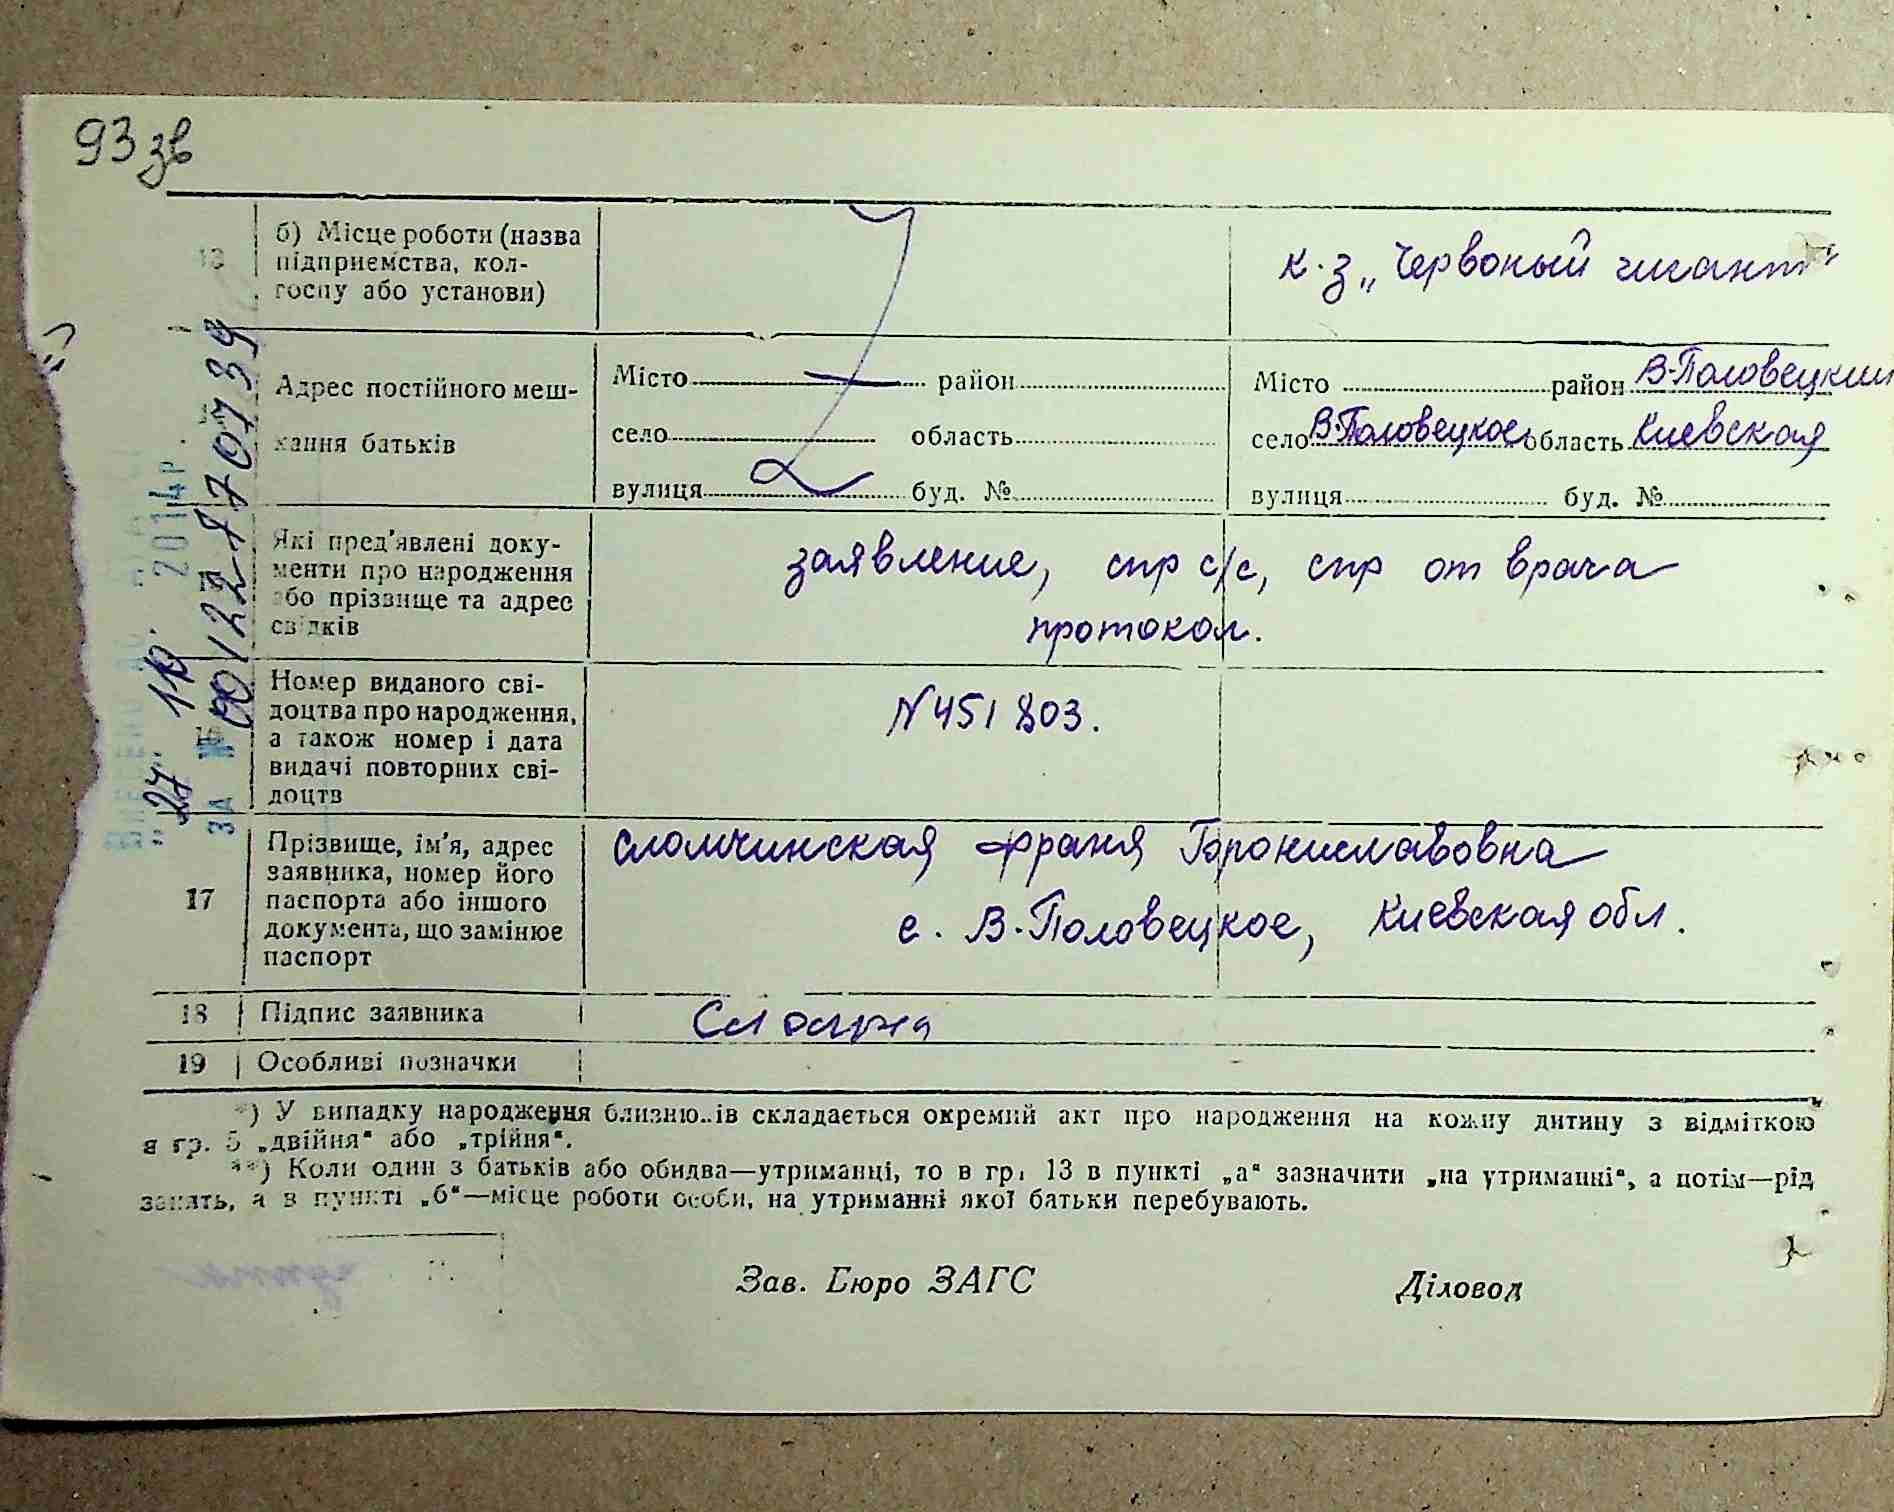 93 зв
б) Місце роботи (назва
підприємства, кол-
госпу або установи)
к.з „Червоный гигант"
Адрес постійного меш-
кання батьків
Місто район
село область
вулиця буд. №
Місто район В-Половецкий
село В-Половецкое область Киевская
вулиця буд. №
Які пред'явлені доку-
менти про народження
або прізвище та адрес
свідків
заявление, спр с/с, спр от врача
протокол.
Номер виданого сві-
доцтва про народження,
а також номер і дата
видачі повторних сві-
доцтв
N 451803.
17
Прізвище, ім'я, адрес
заявника, номер його
паспорта або іншого
документа, що замінює
паспорт
Сломчинская Франя Брониславовна
с. В-Половецкое, Киевская обл.
18 Підпис заявника
19 Особливі позначки
*) У випадку народження близнюків складається окремий акт про народження на кожну дитину з відміткою
в гр. 5 „двійня" або „трійня".
**) Коли один з батьків або обидва—утриманці, то в гр. 13 в пункті „а" зазначити „на утриманні", а потім—рід
занять, а в пункті „б"—місце роботи особи, на утриманні якої батьки перебувають.
Зав. Бюро ЗАГС
Діловод
„27" 10 2014р.
ЗА № 00122870739